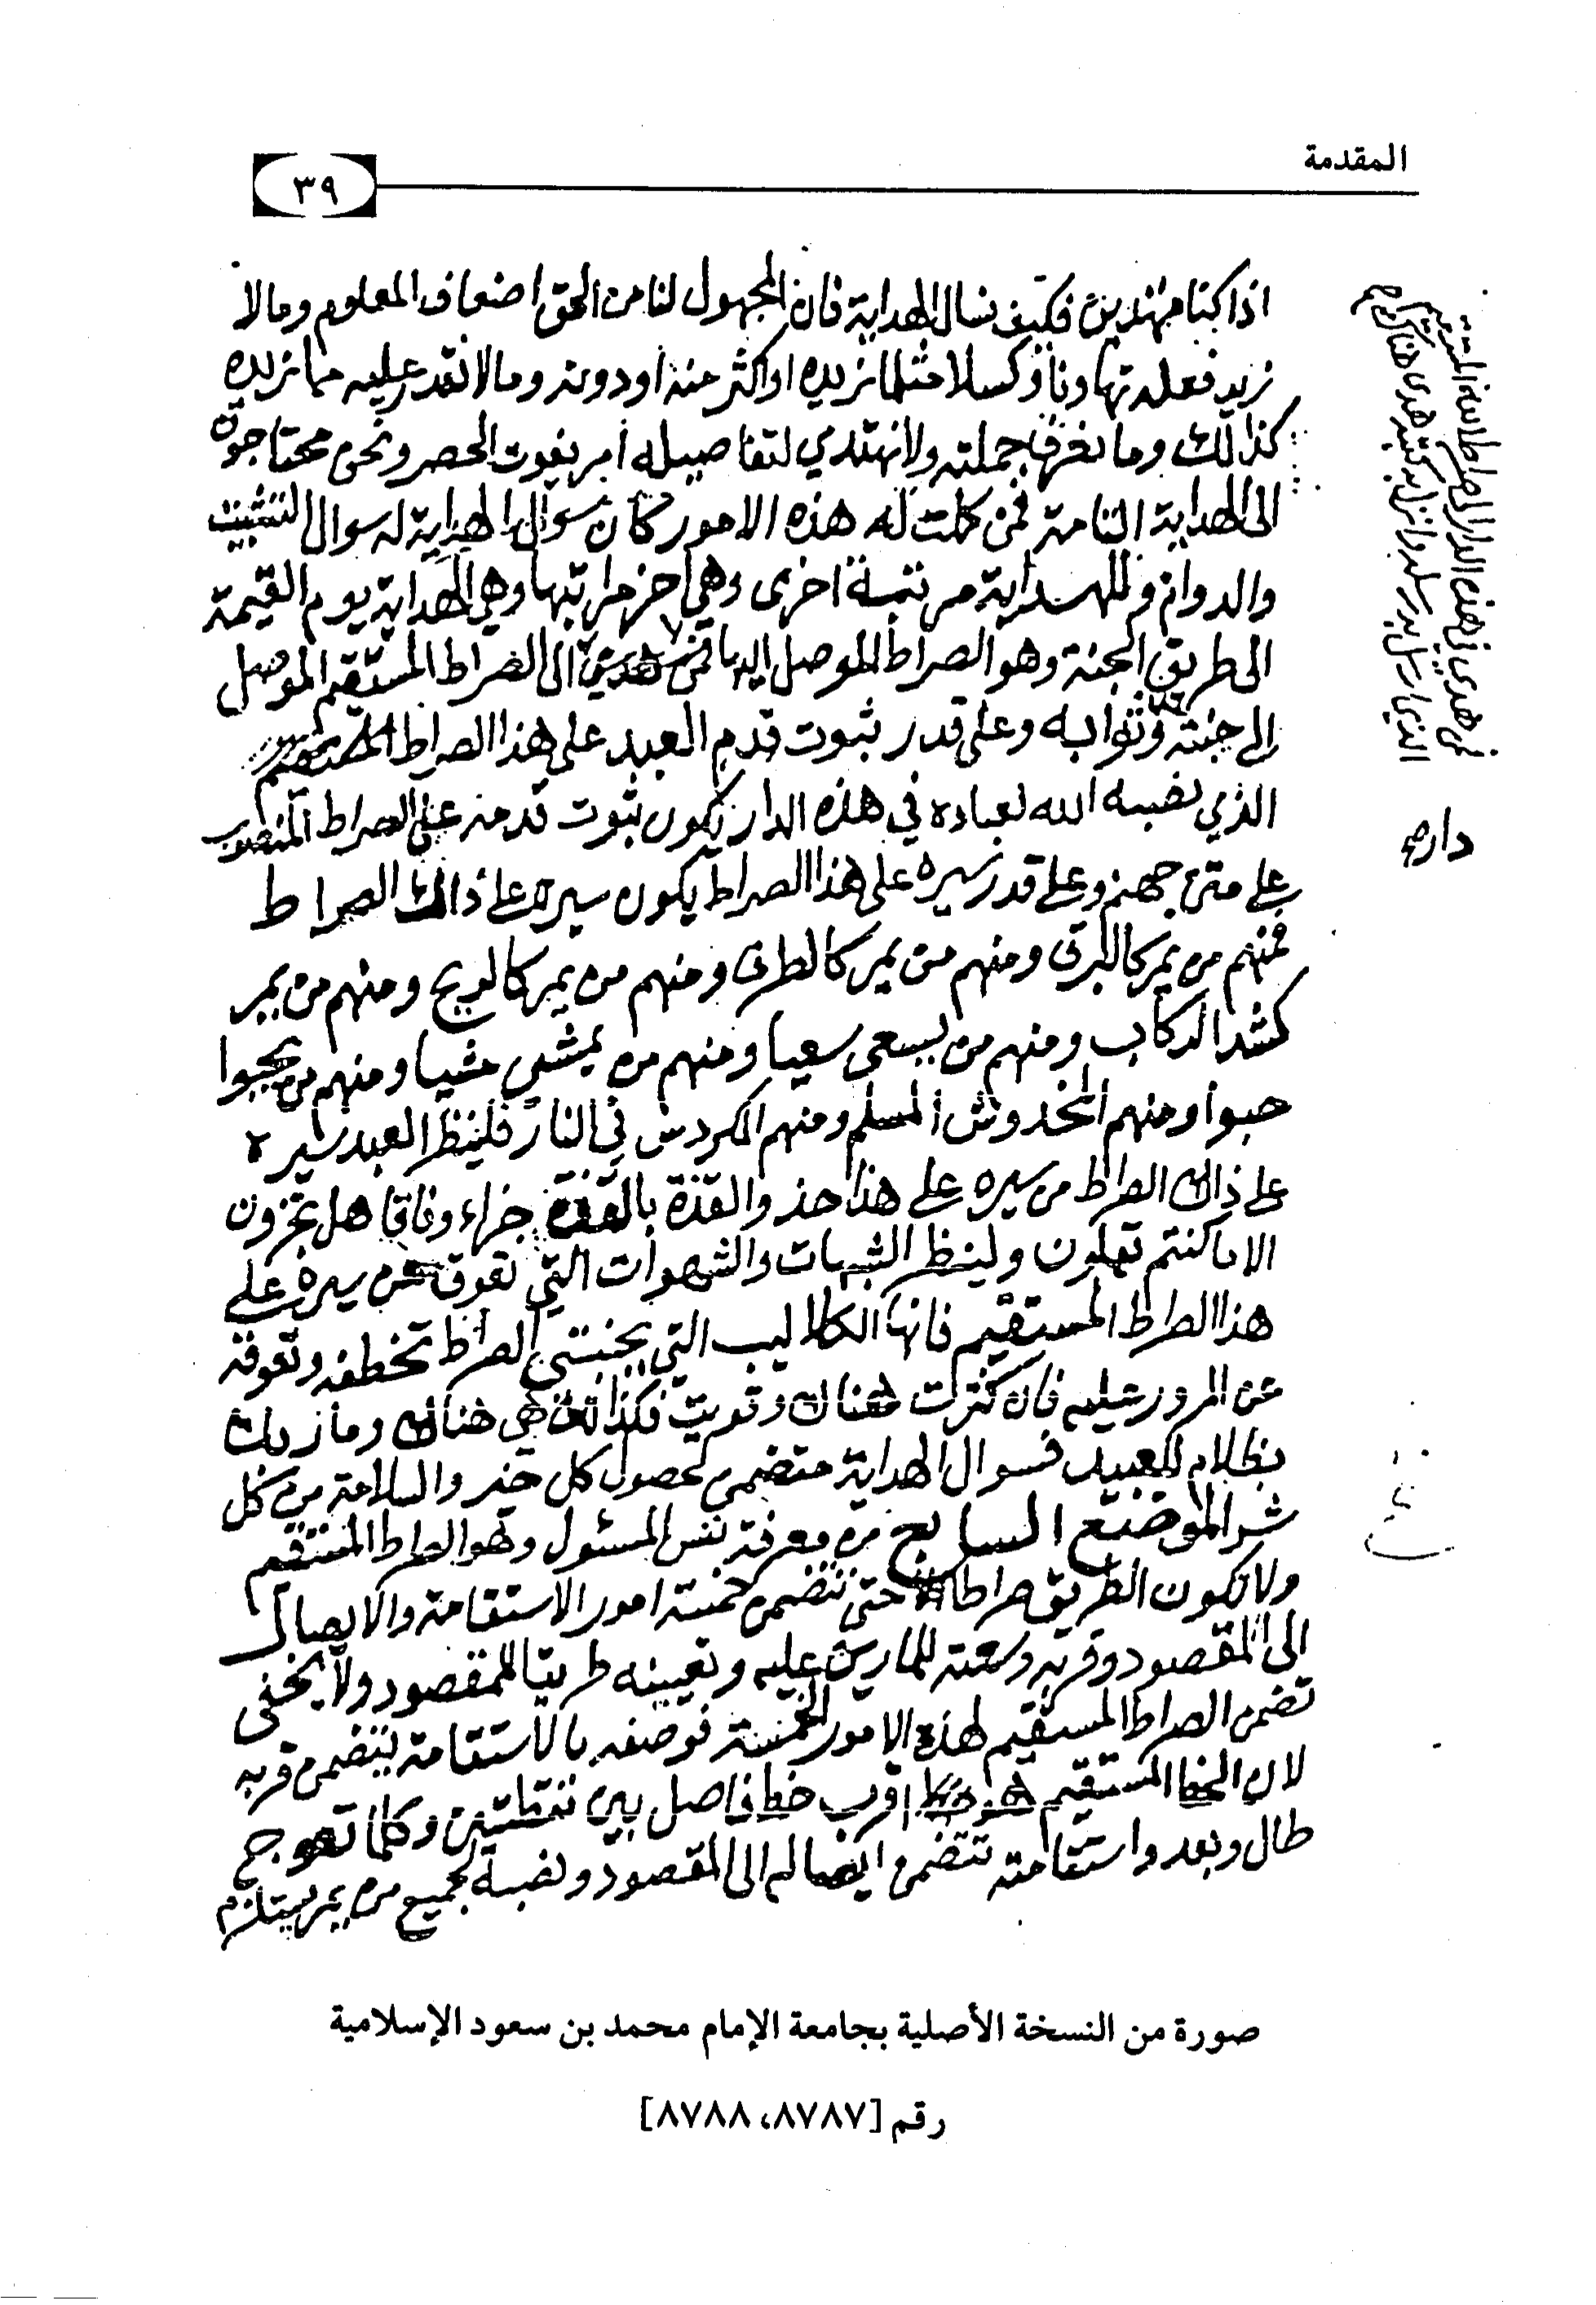 المقدمة
٣٩
اذا كنا مهتدين فكيف نسال الهداية فان المجهول لنا من الحق اضعاف المعلوم وما لا
نريد فعله تهاونا وكسلا مثل ما نريده او اكثر منه او دونه وما لا نقدر عليه مما نريده
كذالك وما نعرف جملته ولا نهتدي لتفاصيله امر يفوت الحصر ونحن محتاجون
الى الهداية التامة فمن كملت له هذه الامور كان سوال الهداية له سوال التثبيت
والدوام وللهداية مرتبة اخرى وهي اخر مراتبها وهي الهداية يوم القيمة
الى طريق الجنة وهو الصراط الموصل اليها فمن هدي الى الصراط المستقيم الموصل
الى جنته وثوابه وعلى قدر ثبوت قدم العبد على هذا الصراط المستقيم
الذي نصبه الله لعباده في هذه الدار يكون ثبوت قدمه على الصراط المنصوب
على متن جهنم وعلى قدر سيره على هذا الصراط يكون سيره على ذالك الصراط
فمنهم من يمر كالبرق ومنهم من يمر كالطرف ومنهم من يمر كالريح ومنهم من يمر
كشد الركاب ومنهم من يسعى سعيا ومنهم من يمشي مشيا ومنهم من يحبوا
حبوا ومنهم المخدوش المسلم ومنهم المكردس في النار فلينظر العبد سيره
على ذالك الصراط من سيره على هذا حذو القذة بالقذة جزاء وفاقا هل تجزون
الا ما كنتم تعملون ولينظر الشبهات والشهوات التي تعوقه عن سيره على
هذا الصراط المستقيم فانها الكلاليب التي بجنبتي الصراط تخطفه وتعوقه
عن المرور عليه فان كثرت هناك وقويت فكذالك هي هنالك وما ربك
بظلام للعبيد فسوال الهداية متضمن لحصول كل خير والسلامة من كل
شر الموضع السابع من معرفة نفس المسئول وهو الصراط المستقيم
ولا تكون الطريق صراطا حتى تتضمن خمسة امور الاستقامة والايصال
الى المقصود وقربه وسعته للمارين عليه وتعيينه طريقا للمقصود ولا يخفى
تضمن الصراط المستقيم لهذه الامور الخمسة فوصفه بالاستقامة يتضمن قربه
لان الخط المستقيم هو اقرب خط فاصل بين نقطتين وكلما تعوج
طال وبعد واستقامته تتضمن ايصاله الى المقصود ونصبه لجميع من يمر يستلزم
فمن هدي في هذه الدار الى صراط الله المستقيم
الذي ارسل به رسله وانزل به كتبه هدي هناك
داره
صورة من النسخة الأصلية بجامعة الإمام محمد بن سعود الإسلامية
رقم [٨٧٨٧، ٨٧٨٨]